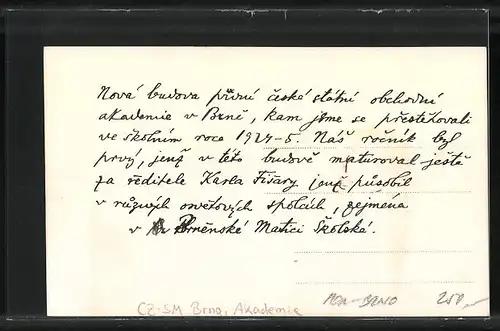 Nová budova první české státní obchodní
akademie v Brně, kam jsme se přestěhovali
ve školním roce 1924-5. Náš ročník byl
prvý, jenž v této budově maturoval ještě
za ředitele Karla Fišary jenž působil
v různých osvětových spolcích, zejména
v Brněnské Matici Školské.
CZ-SM Brno, Akademie
BRNO 250,-